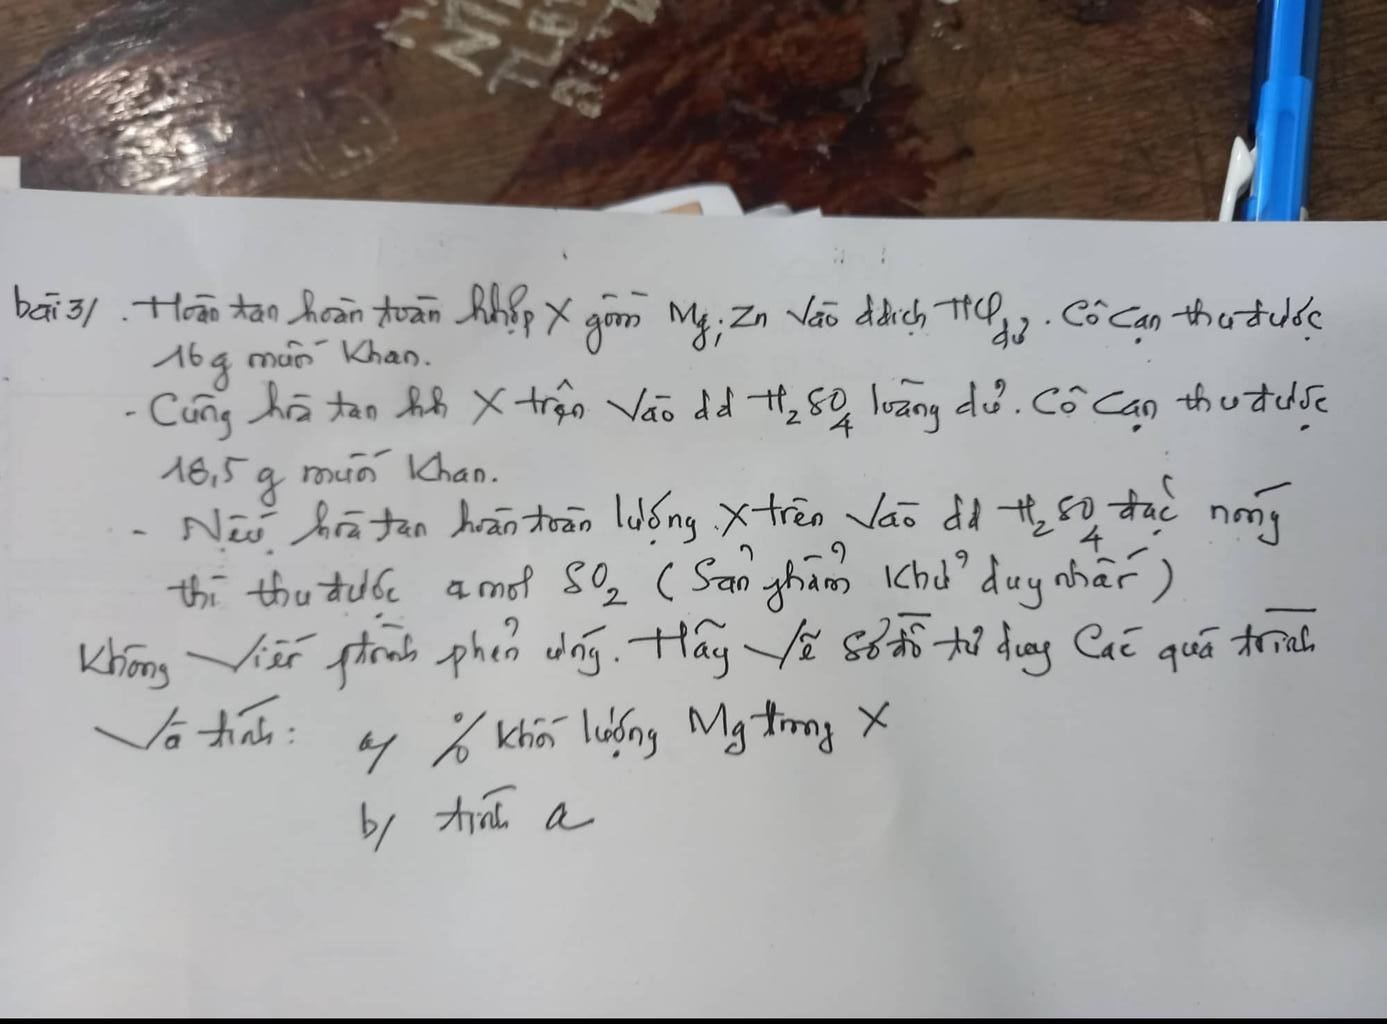 bài 3/. Hoàn tan hoàn toàn hhợp X gồm Mg; Zn vào ddịch HCl dư. Cô cạn thu được
16g muối khan.
- Cũng hòa tan hh X trên vào dd H₂SO₄ loãng dư. Cô cạn thu được
18,5 g muối khan.
- Nếu hòa tan hoàn toàn lượng X trên vào dd H₂SO₄ đặc nóng
thì thu được a mol SO₂ (Sản phẩm khử duy nhất)
Không viết ptrình phản ứng. Hãy vẽ sơ đồ tư duy các quá trình
Và tính: a/ % khối lượng Mg trong X
b/ tính a